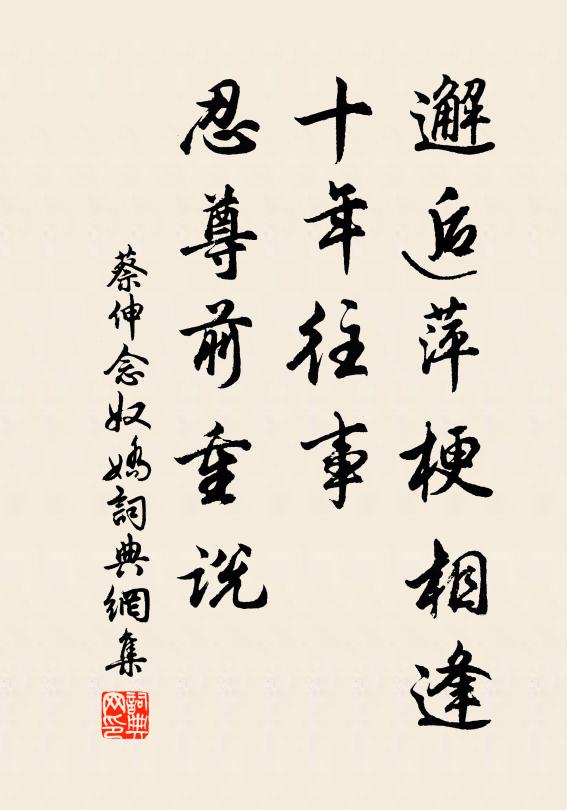 邂逅萍梗相逢
十年往事
忍尊前重说
蔡伸念奴娇詞典網集
詞典
网印